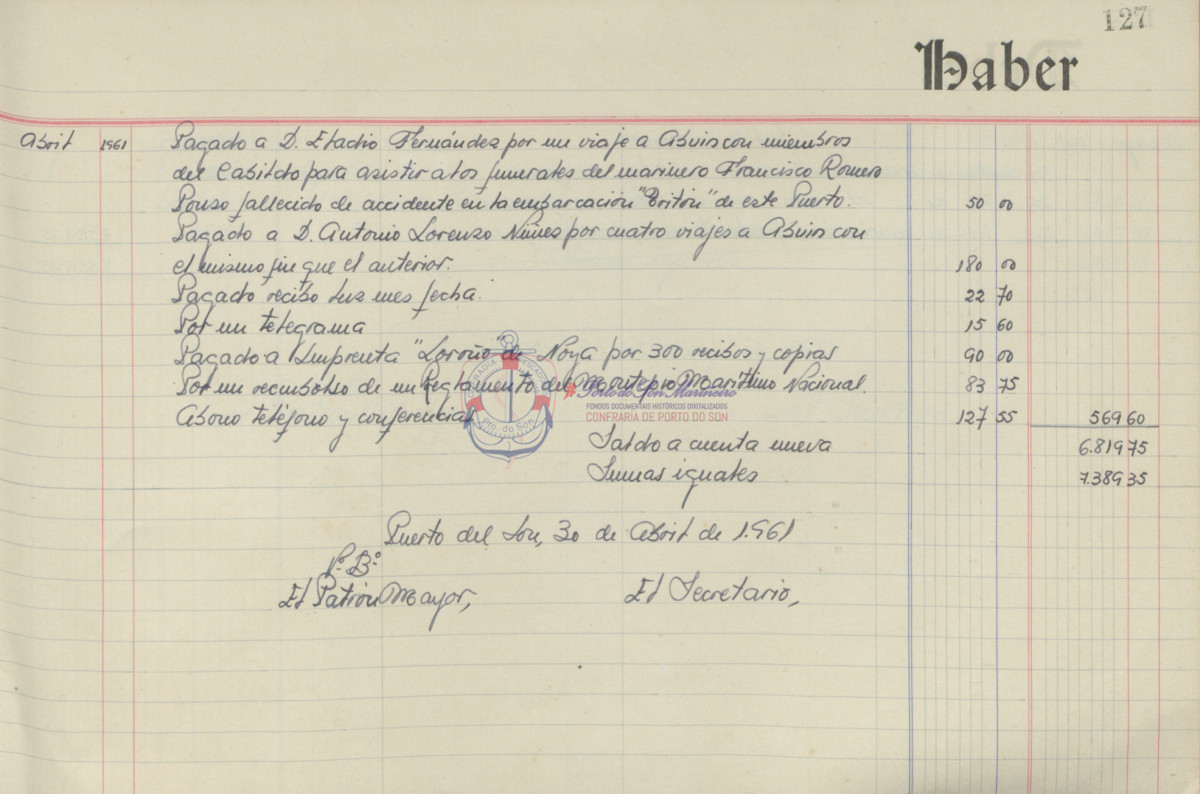 127
Haber
Abril 1961 Pagado a D. Eladio Fernández por un viaje a Abuin con miembros
del Cabildo para asistir a los funerales del marinero Francisco Romero
Pouso fallecido de accidente en la embarcación "Tritón" de este Puerto. 50 00
Pagado a D. Antonio Lorenzo Núñez por cuatro viajes a Abuin con
el mismo fin que el anterior. 180 00
Pagado recibo luz mes fecha. 22 70
Por un telegrama 15 60
Pagado a Imprenta "Loroño" de Noya por 300 recibos y copias 90 00
Por un reembolso de un Reglamento del Montepio Marítimo Nacional. 83 75
Abono teléfono y conferencias 127 55 569 60
Saldo a cuenta nueva 6.819 75
Sumas iguales 7.389 35
Puerto del Son, 30 de Abril de 1.961
Vº. Bº.
El Patrón Mayor, El Secretario,
Pto. do Son
Porto do Son Mariñeiro
FONDOS DOCUMENTAIS HISTÓRICOS DIGITALIZADOS
CONFRARÍA DE PORTO DO SON